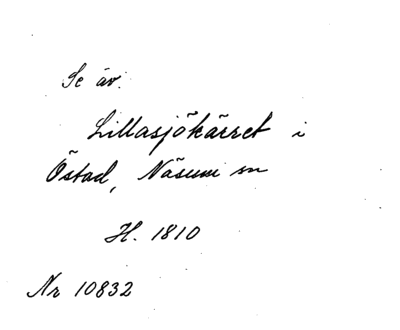 Se äv.
Lillasjökärret i
Östad, Näsum sn
H. 1810
Nr 10832